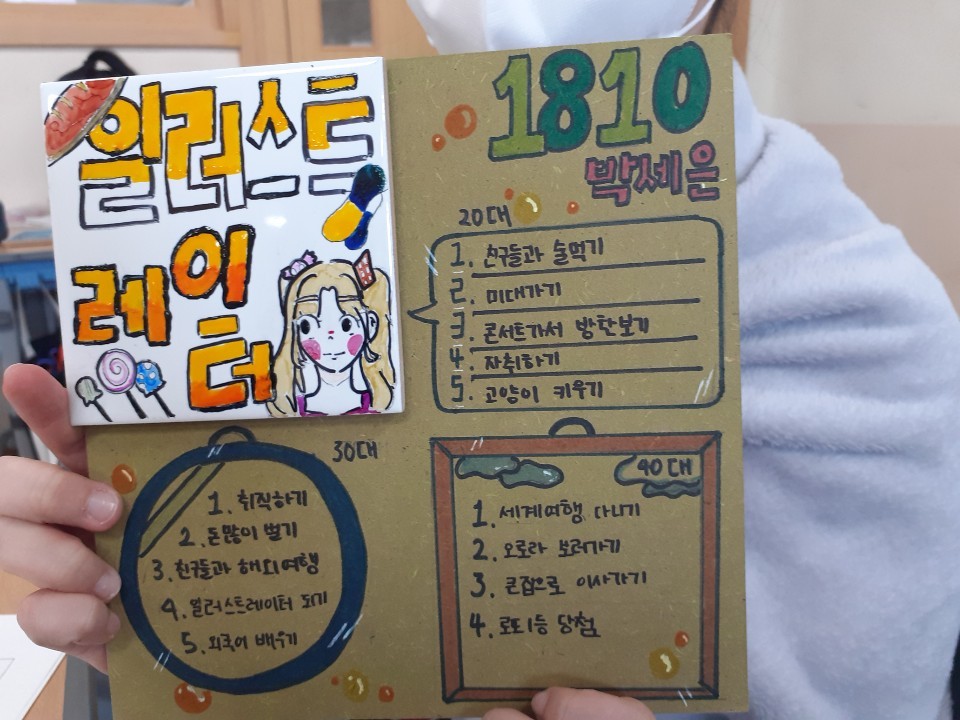 일러스트
레이
터
1810
박세은
20대
1. 친구들과 술먹기
2. 미대가기
3. 콘서트가서 방탄보기
4. 자취하기
5. 고양이 키우기
30대
1. 취직하기
2. 돈많이 벌기
3. 친구들과 해외여행
4. 일러스트레이터 되기
5. 외국어 배우기
40대
1. 세계여행 다니기
2. 오로라 보러가기
3. 큰집으로 이사가기
4. 로또1등 당첨